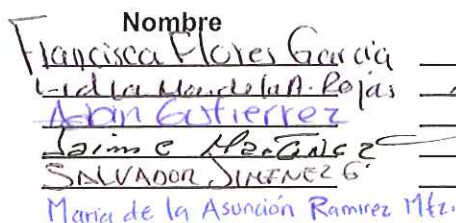 Nombre
Francisca Flores García
Lidia A. Rojas
Adan Gutierrez
Jaime Martinez
SALVADOR JIMENEZ G.
Maria de la Asunción Ramirez Mtz.